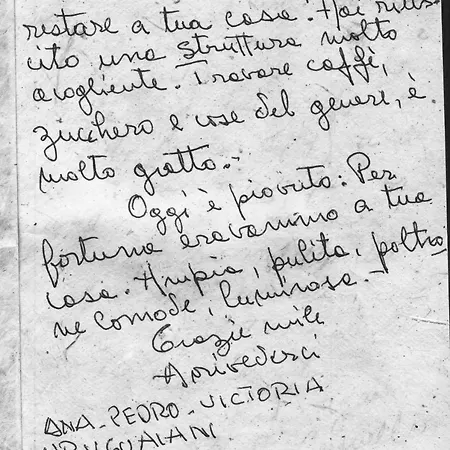 restare a tua casa. Hai rius
cito una struttura molto
acogliente. Trovare caffè,
zucchero e cose del genere, è
molto gratto.-
Oggi è piovuto: Per
fortuna eravammo a tua
casa. Ampia, pulita, poltro
ne comode, luminosa.-
Grazie mile
Arrivederci
ANA-PEDRO-VICTORIA
URUGUAIANI